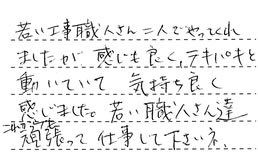 若い工事職人さん二人でやってくれ
ましたが 感じも良く,テキパキと
動いていて 気持ち良く
感じました。若い職人さん達
これからも
頑張って 仕事して下さいネ